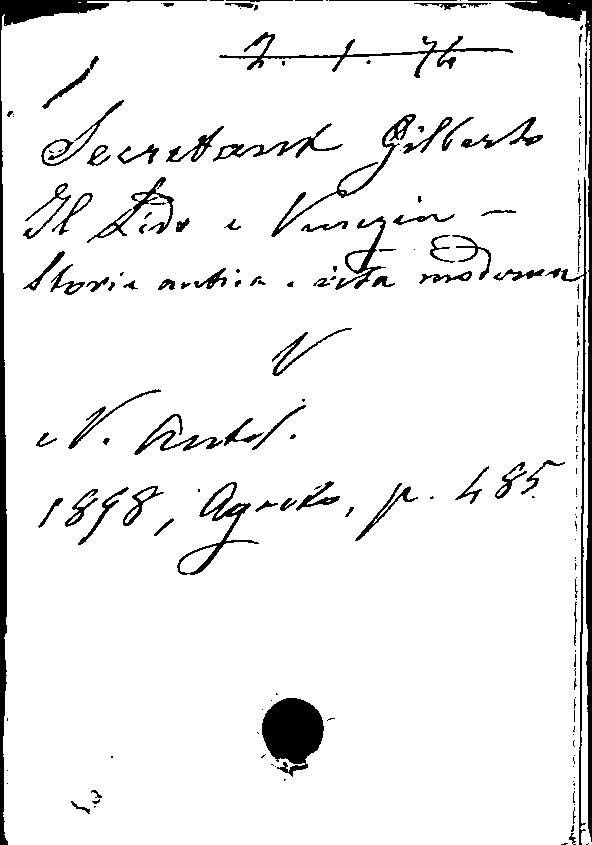 2. 1. 76
Secrétant Gilberto
Il Lido e Venezia —
Storia antica e vita moderna
V
N. Antol.
1898, Agosto, p. 485